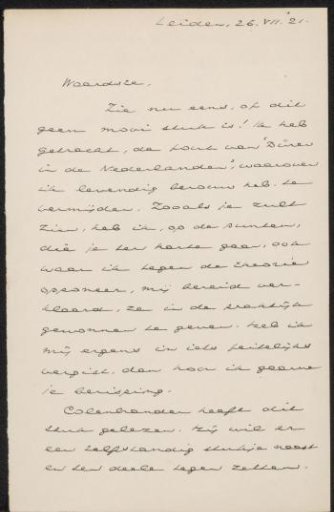 Leiden, 26.VII.'21.
Waardste,
Zie nu eens, of dit
geen mooi stuk is! Ik heb
getracht, de fout van "Dürer
in de Nederlanden", waarover
ik levendig berouw heb, te
vermijden. Zooals je zult
zien, heb ik, op de punten,
die je ter harte gaan, ook
waar ik tegen de theorie
opponeer, mij bereid ver-
klaard, ze in de praktijk
gewonnen te geven. Heb ik
mij ergens in iets feitelijks
vergist, dan hoor ik gaarne
je berisping.
Colenbrander heeft dit
stuk gelezen. Hij wil er
een zelfstandig stukje naast
en ten deele tegen zetten.